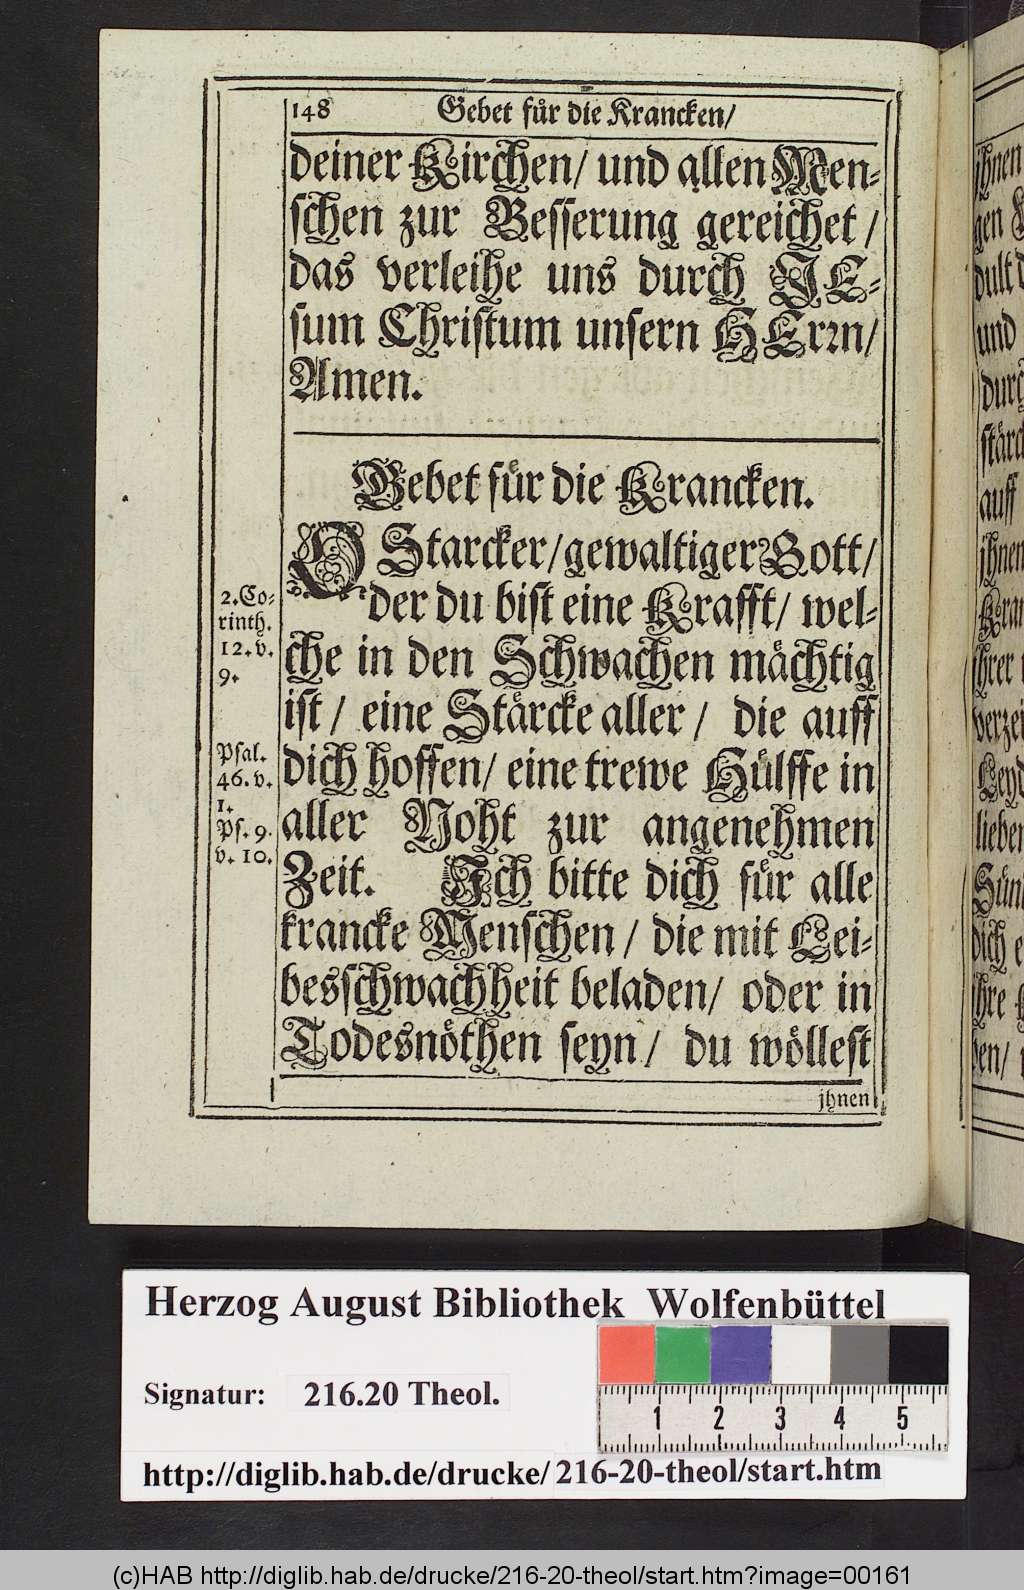 148 Gebet für die Krancken/
deiner Kirchen/ und allen Men-
schen zur Besserung gereichet/
das verleihe uns durch JE-
sum Christum unsern HErrn/
Amen.
Gebet für die Krancken.
O Starcker/ gewaltiger Gott/
der du bist eine Krafft/ wel-
che in den Schwachen mächtig
ist/ eine Stärcke aller/ die auff
dich hoffen/ eine trewe Hülffe in
aller Noht zur angenehmen
Zeit. Ich bitte dich für alle
krancke Menschen/ die mit Lei-
besschwachheit beladen/ oder in
Todesnöthen seyn/ du wöllest
jhnen
2. Co-
rinth.
12. v.
9.
Psal.
46. v.
1.
Ps. 9.
v. 10.
jhnen
gen
dult
und
durch
stärc
auff
jhnen
Kran
ihrer
verzei
Leyd
lieben
Sün
dich e
ihre
den/
Herzog August Bibliothek Wolfenbüttel
Signatur: 216.20 Theol.
1 2 3 4 5
http://diglib.hab.de/drucke/216-20-theol/start.htm
(c)HAB http://diglib.hab.de/drucke/216-20-theol/start.htm?image=00161